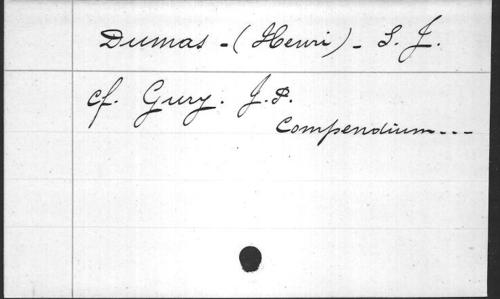 Dumas - (Henri) - S. J.
cf. Gury. J. P.
Compendium---